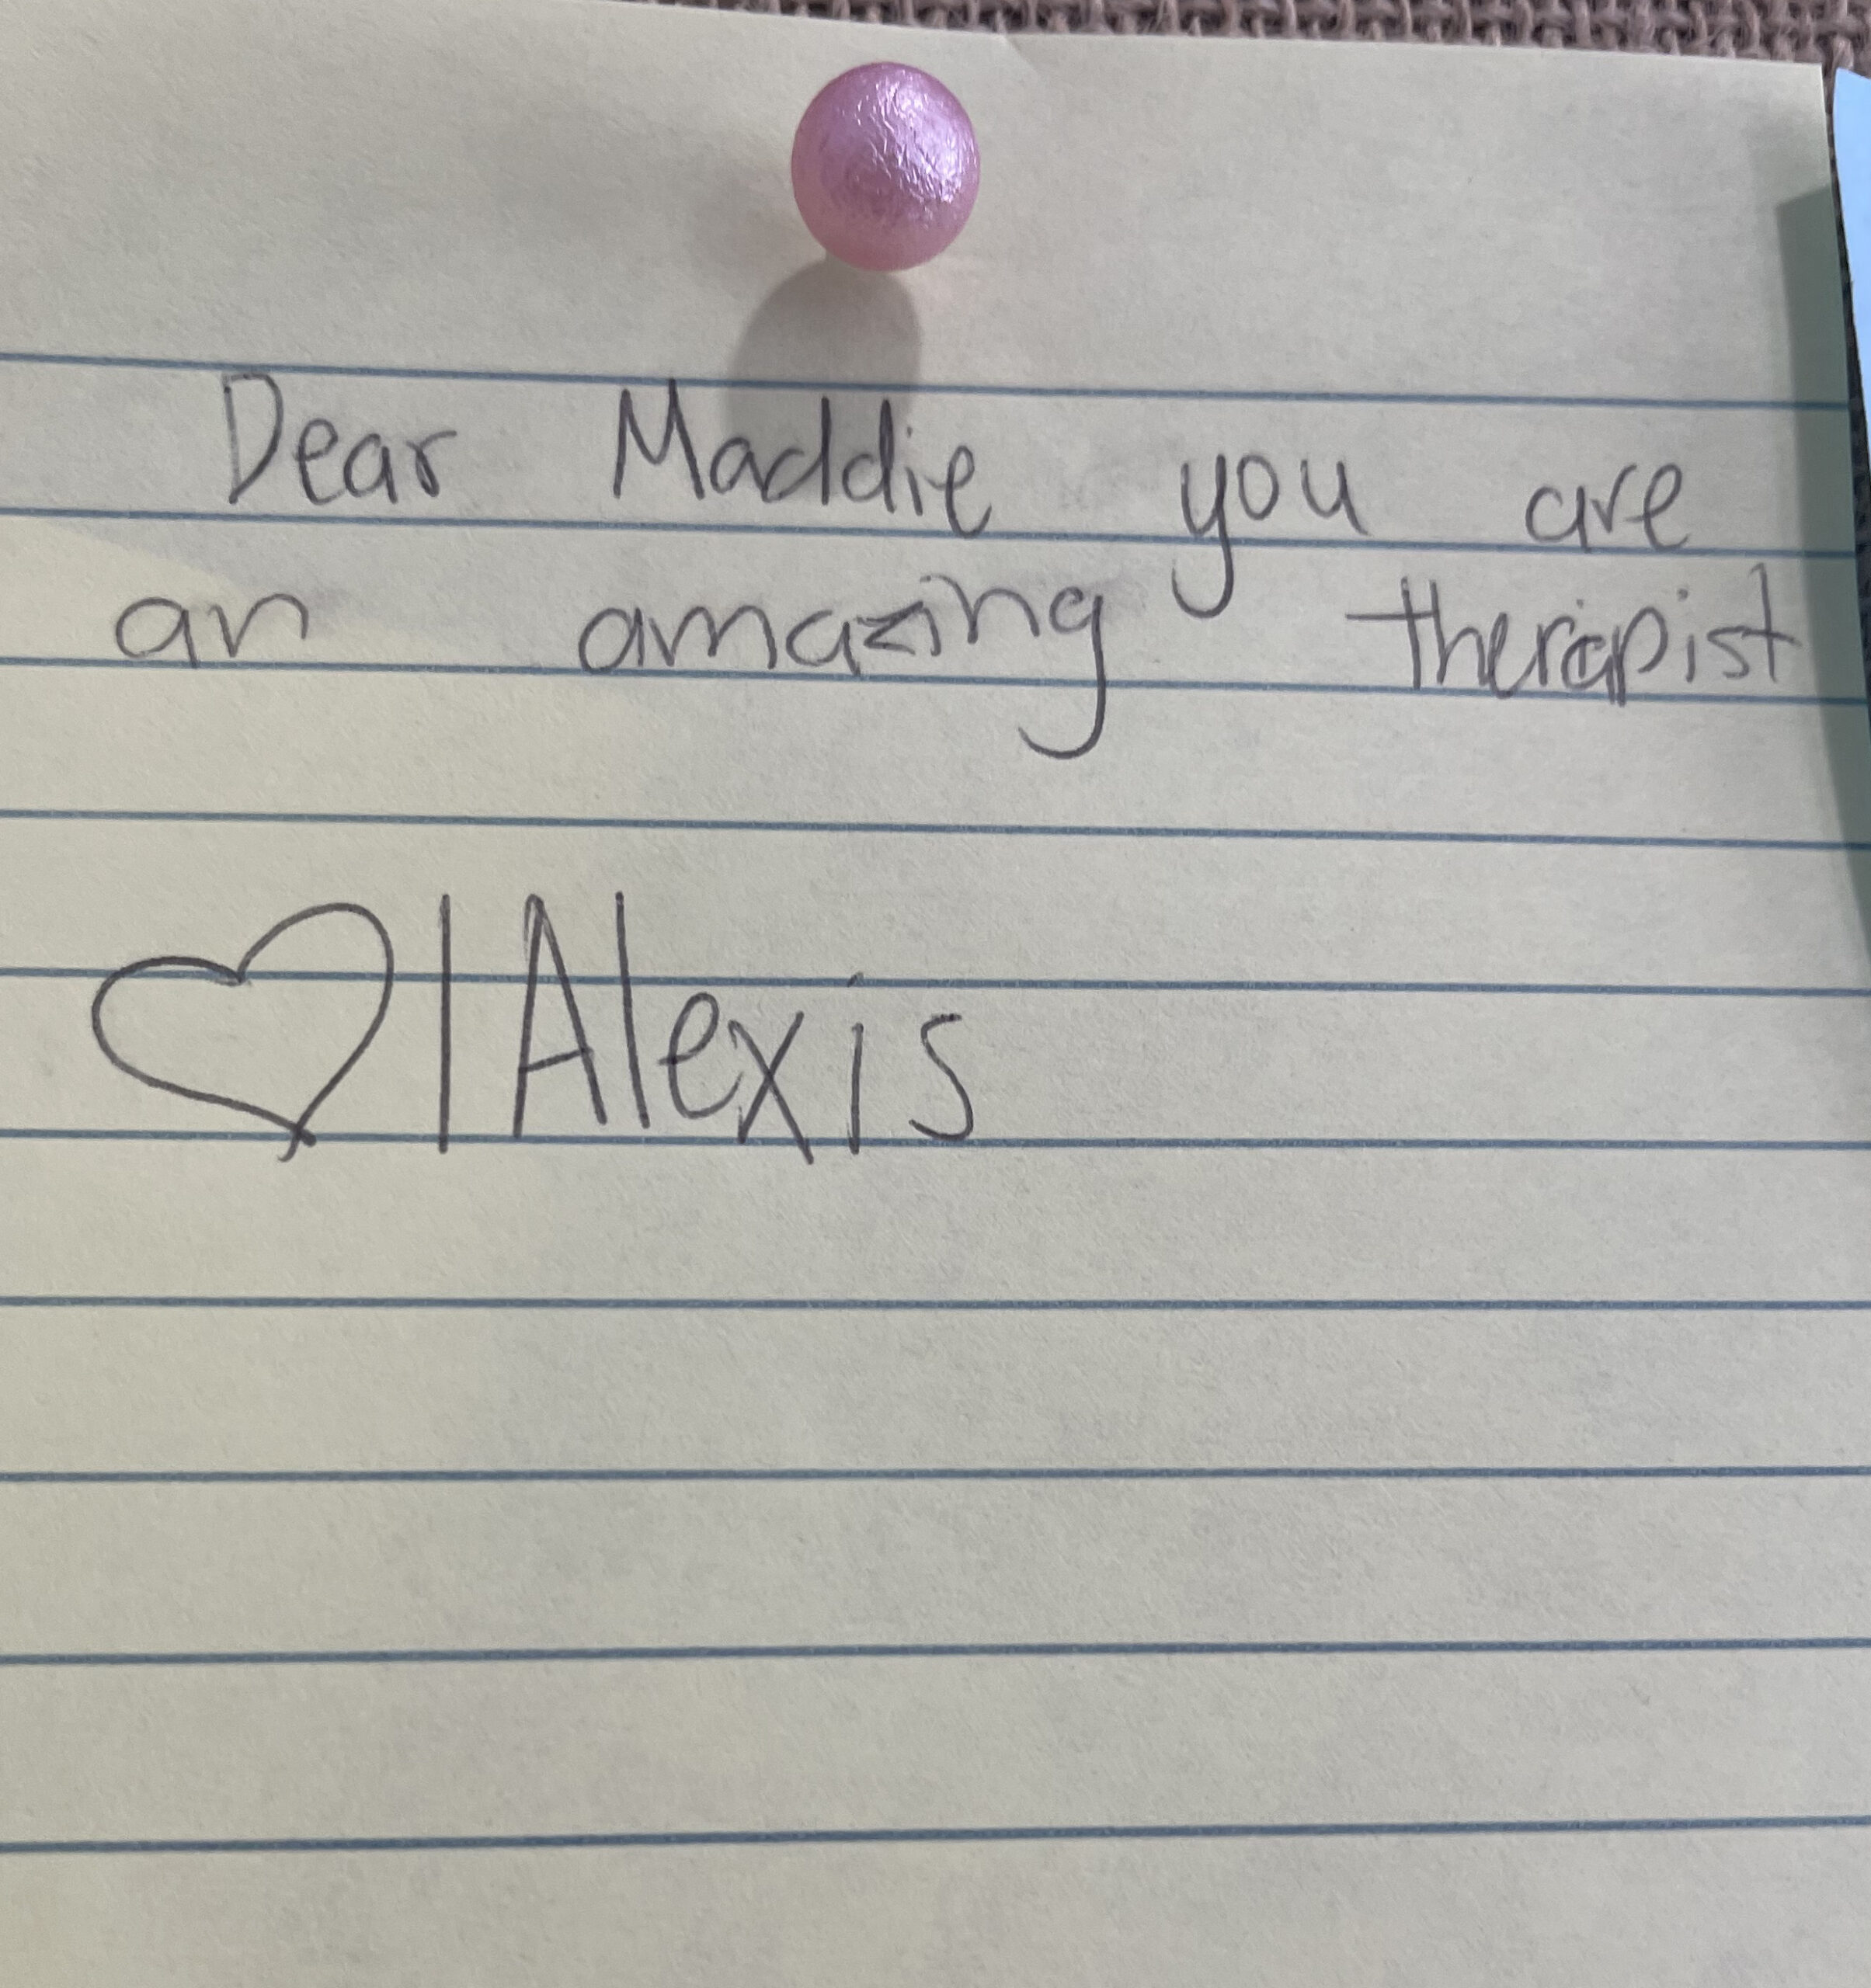 Dear Maddie you are
an amazing therapist
♡|Alexis